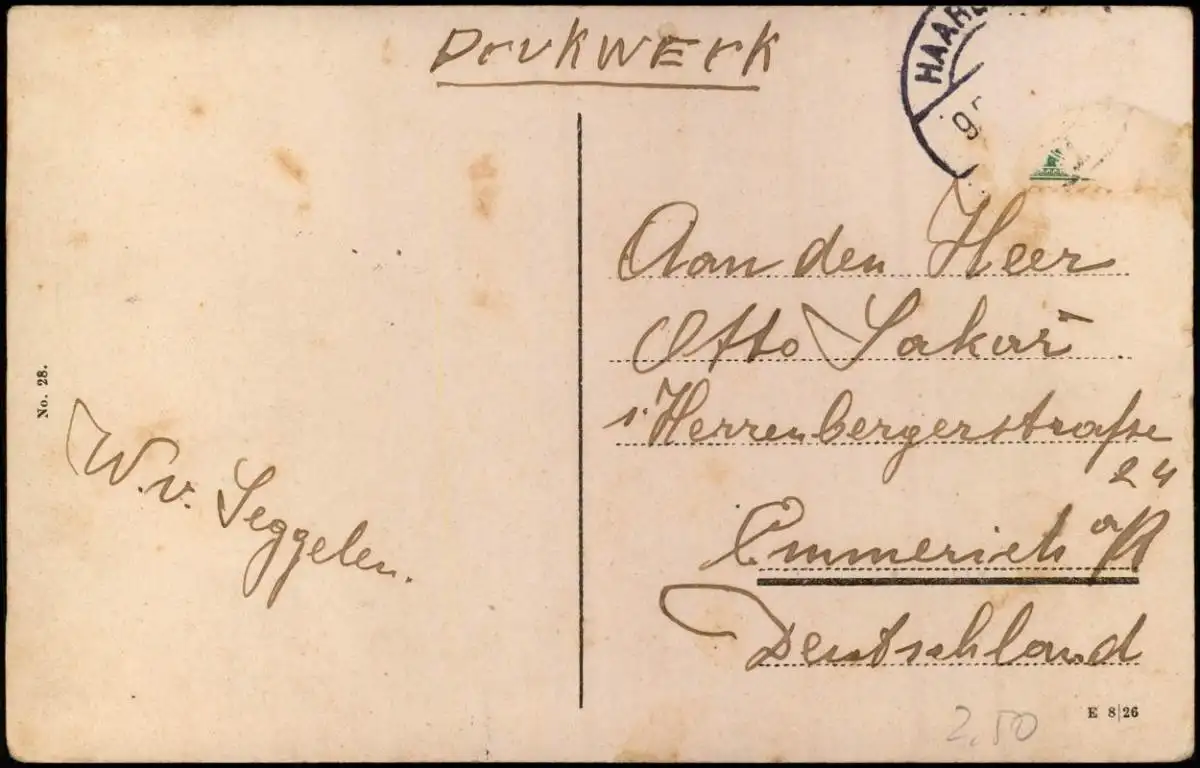 DrukWErk
HAARL
9
Aan den Heer
Otto Sakar
Herrenbergerstraße
24
Emmerich a/R
Deutschland
No. 28.
W. v. Seggelen.
E 8|26
2,50